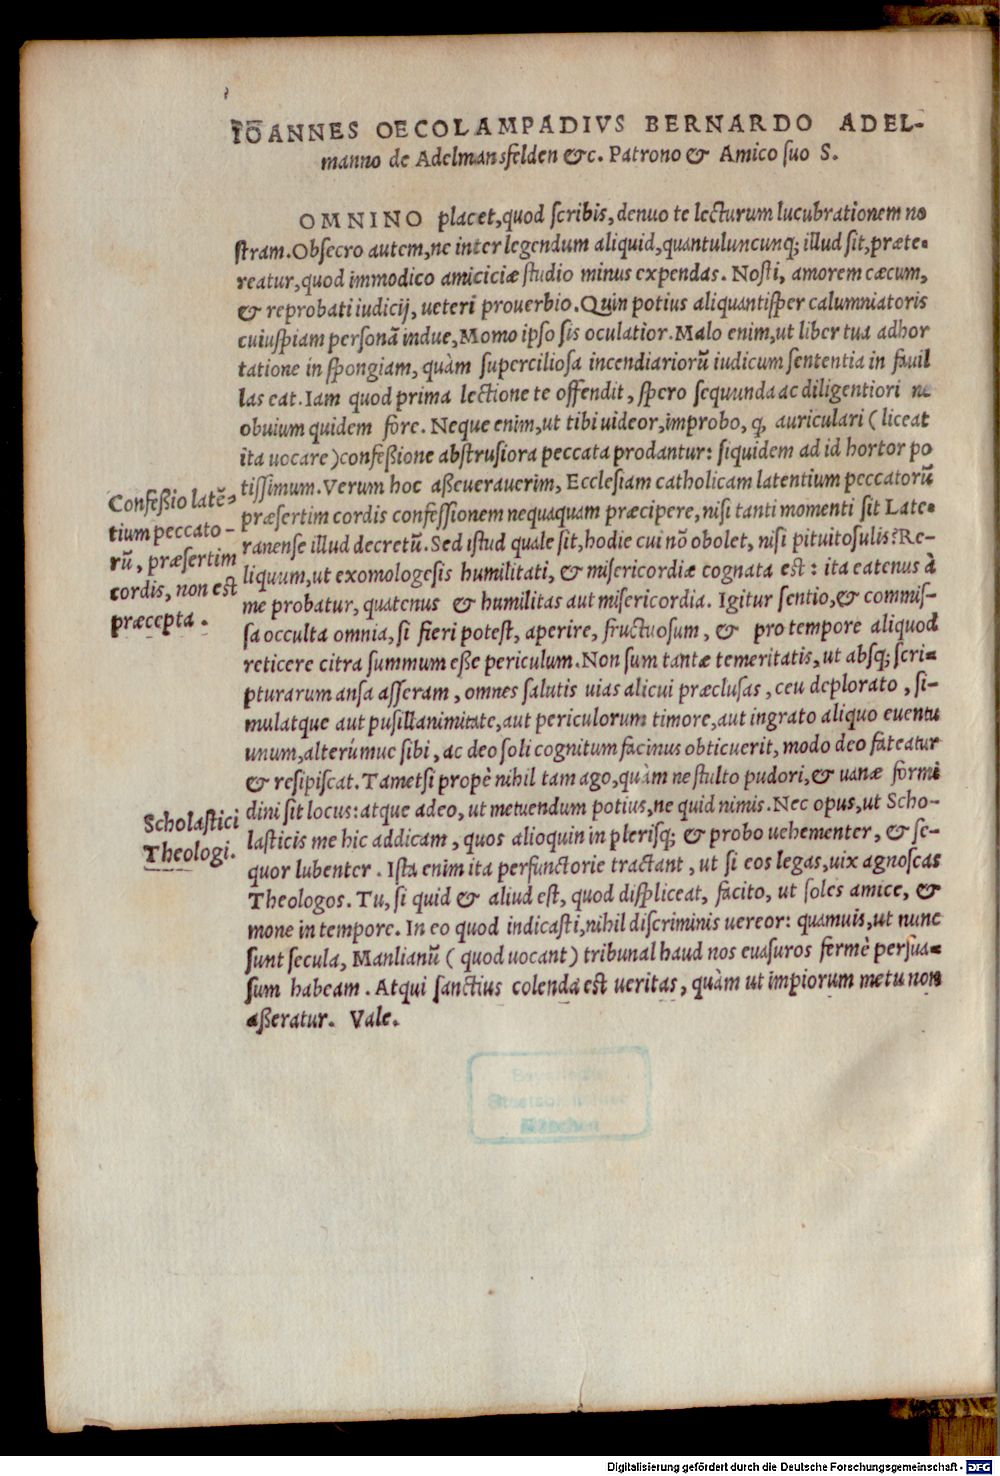 IOANNES OECOLAMPADIVS BERNARDO ADEL-
manno de Adelmansfelden &c. Patrono & Amico suo S.
OMNINO placet, quod scribis, denuo te lecturum lucubrationem no
stram. Obsecro autem, ne inter legendum aliquid, quantuluncunq; illud sit, præte-
reatur, quod immodico amiciciæ studio minus expendas. Nosti, amorem cæcum,
& reprobati iudicij, ueteri prouerbio. Quin potius aliquantisper calumniatoris
cuiuspiam personā indue, Momo ipso sis oculatior. Malo enim, ut liber tua adhor
tatione in spongiam, quàm superciliosa incendiariorū iudicum sententia in fauil
las eat. Iam quod prima lectione te offendit, spero sequunda ac diligentiori ne
obuium quidem fore. Neque enim, ut tibi uideor, improbo, q, auriculari (liceat
ita uocare) confeßione abstrusiora peccata prodantur: siquidem ad id hortor po
tissimum. Verum hoc aßeuerauerim, Ecclesiam catholicam latentium peccatorū
præsertim cordis confessionem nequaquam præcipere, nisi tanti momenti sit Late-
ranense illud decretū. Sed istud quale sit, hodie cui nō obolet, nisi pituitosulis? Re-
liquum, ut exomologesis humilitati, & misericordiæ cognata est: ita eatenus à
me probatur, quatenus & humilitas aut misericordia. Igitur sentio, & commis-
sa occulta omnia, si fieri potest, aperire, fructuosum, & pro tempore aliquod
reticere citra summum eße periculum. Non sum tantæ temeritatis, ut absq; scri-
pturarum ansa asseram, omnes salutis uias alicui præclusas, ceu deplorato, si-
mulatque aut pusillanimitate, aut periculorum timore, aut ingrato aliquo euentu
unum, alterúmue sibi, ac deo soli cognitum facinus obticuerit, modo deo fateatur
& resipiscat. Tametsi propè nihil tam ago, quàm ne stulto pudori, & uanæ formi
dini sit locus: atque adeo, ut metuendum potius, ne quid nimis. Nec opus, ut Scho-
lasticis me hic addicam, quos alioquin in plerisq; & probo uehementer, & se-
quor lubenter. Ista enim ita perfunctorie tractant, ut si eos legas, uix agnoscas
Theologos. Tu, si quid & aliud est, quod displiceat, facito, ut soles amice, &
mone in tempore. In eo quod indicasti, nihil discriminis uereor: quamuis, ut nunc
sunt secula, Manlianū (quod uocant) tribunal haud nos euasuros fermè persua-
sum habeam. Atqui sanctius colenda est ueritas, quàm ut impiorum metu non
aßeratur. Vale.
Confeßio latē-
tium peccato-
rū, præsertim
cordis, non est
præcepta.
Scholastici
Theologi.
Bayerische
Staatsbibliothek
München
Digitalisierung gefördert durch die Deutsche Forschungsgemeinschaft - DFG